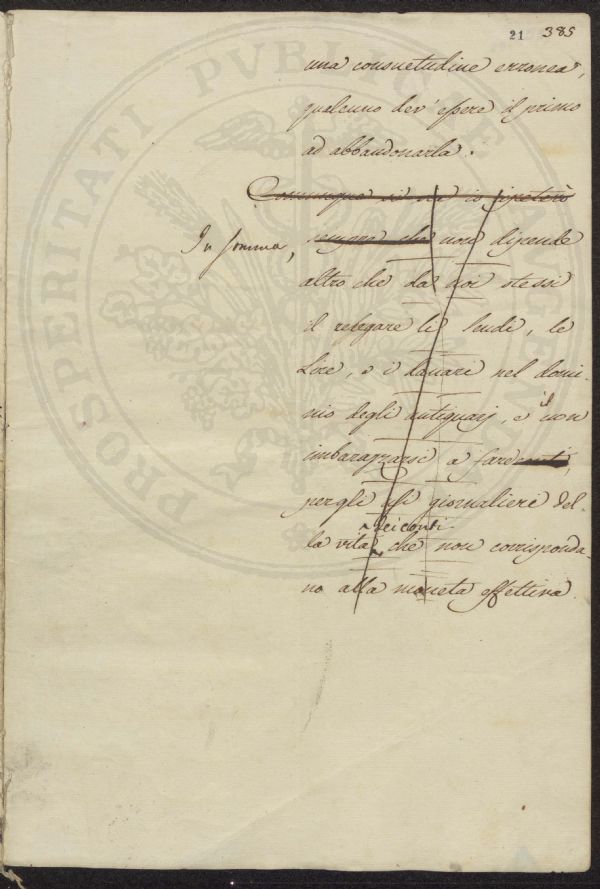 21 385
una consuetudine erronea,
qualcuno dev'essere il primo
ad abbandonarla.
Comunque si sia io ripeterò
sempre che non dipende
In somma,
altro che da noi stessi
il relegare li Scudi, le
Lire, e i danari nel domi-
nio degli antiquarj, e il non
imbarazzarsi a fare
per gli usi giornalieri del-
dei conti
la vita, che non corrisponda-
no alla moneta effettiva.
PROSPERITATI PVBLICAE AVGENDAE